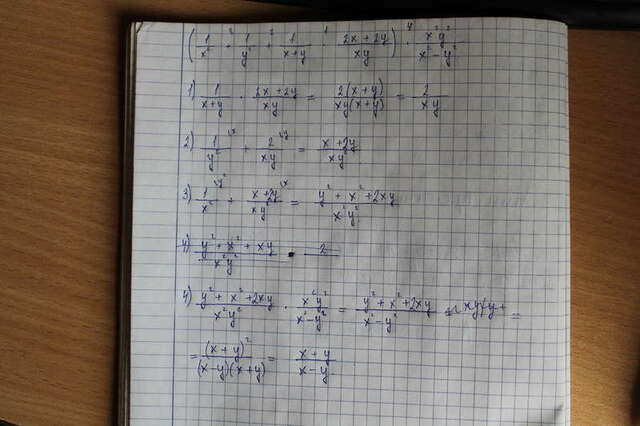 (1/x² + 1/y² + 1/x+y · 2x+2y/xy) · x²y²/x²-y²
1) 1/x+y · 2x+2y/xy = 2(x+y)/xy(x+y) = 2/xy
2) 1/y² + 2/xy = x+2y/xy²
3) 1/x² + x+2y/xy² = y²+x²+2xy/x²y²
4) y²+x²+xy/x²y² · 2
4) y²+x²+2xy/x²y² · x²y²/x²-y² = y²+x²+2xy/x²-y² =
= (x+y)²/(x-y)(x+y) = x+y/x-y